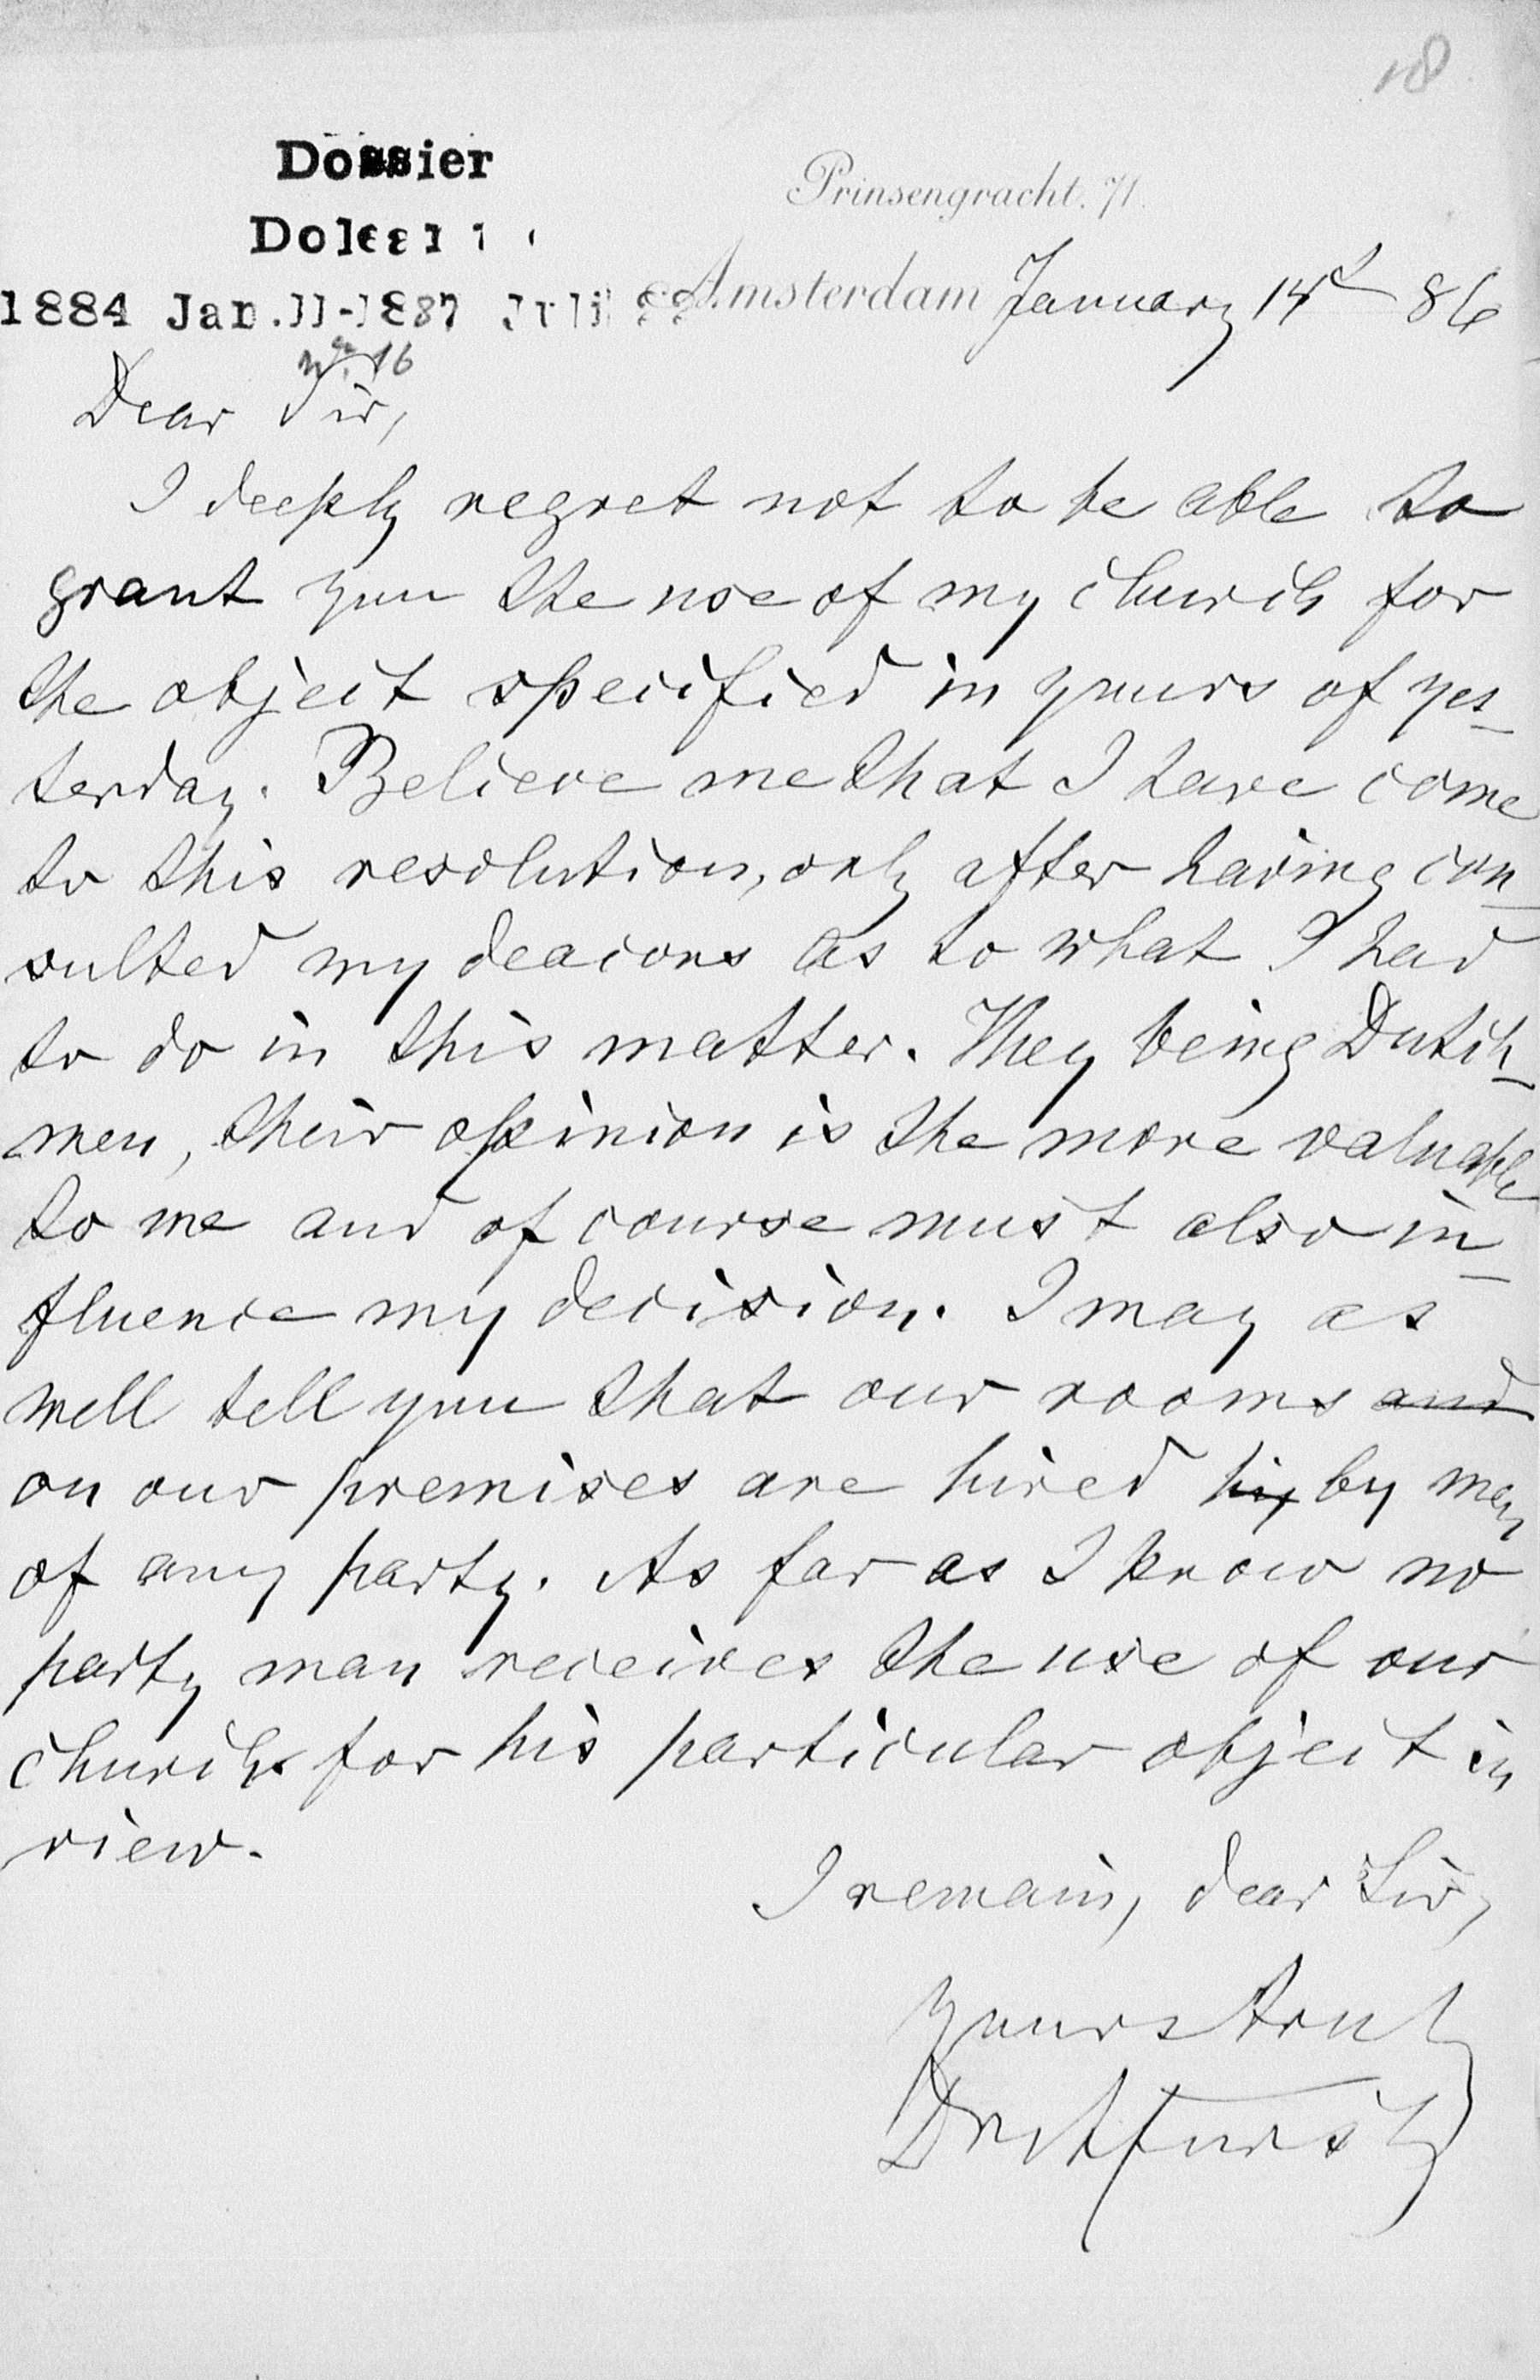 18
Dossier
Prinsengracht. 71.
1884 Jan. 11-1887
Amsterdam January 14th 86
No. 16
Dear Sir,
I deeply regret not to be able to
grant you the use of my church for
the object specified in yours of yes-
terday. Believe me that I have come
to this resolution, only after having con-
sulted my deacons as to what I had
to do in this matter. They being Dutch-
men, their opinion is the more valuable
to me and of course must also in-
fluence my decision. I may as
well tell you that our rooms and
on our premises are hired by men
of any party. As far as I know no
party man receives the use of our
church for his particular object in
view.
I remain, dear Sir,
Yours truly